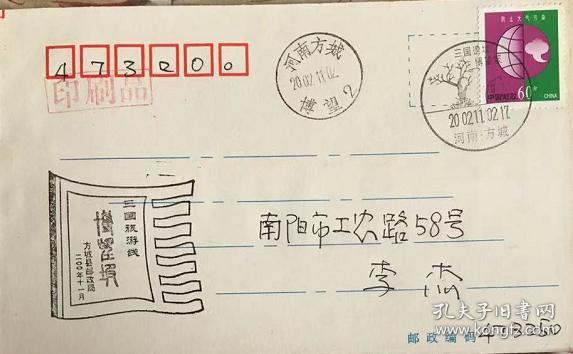 473000
印刷品
河南方城
2002.11.02
博望 2
防止大气污染
三国遗址
博望坡
2002.11.02.17
河南·方城
中国邮政 60分
CHINA
三国旅游线
博望坡
方城县邮政局
二〇〇二年十一月
南阳市工农路58号
李杰
邮政编码 473050
孔夫子旧书网